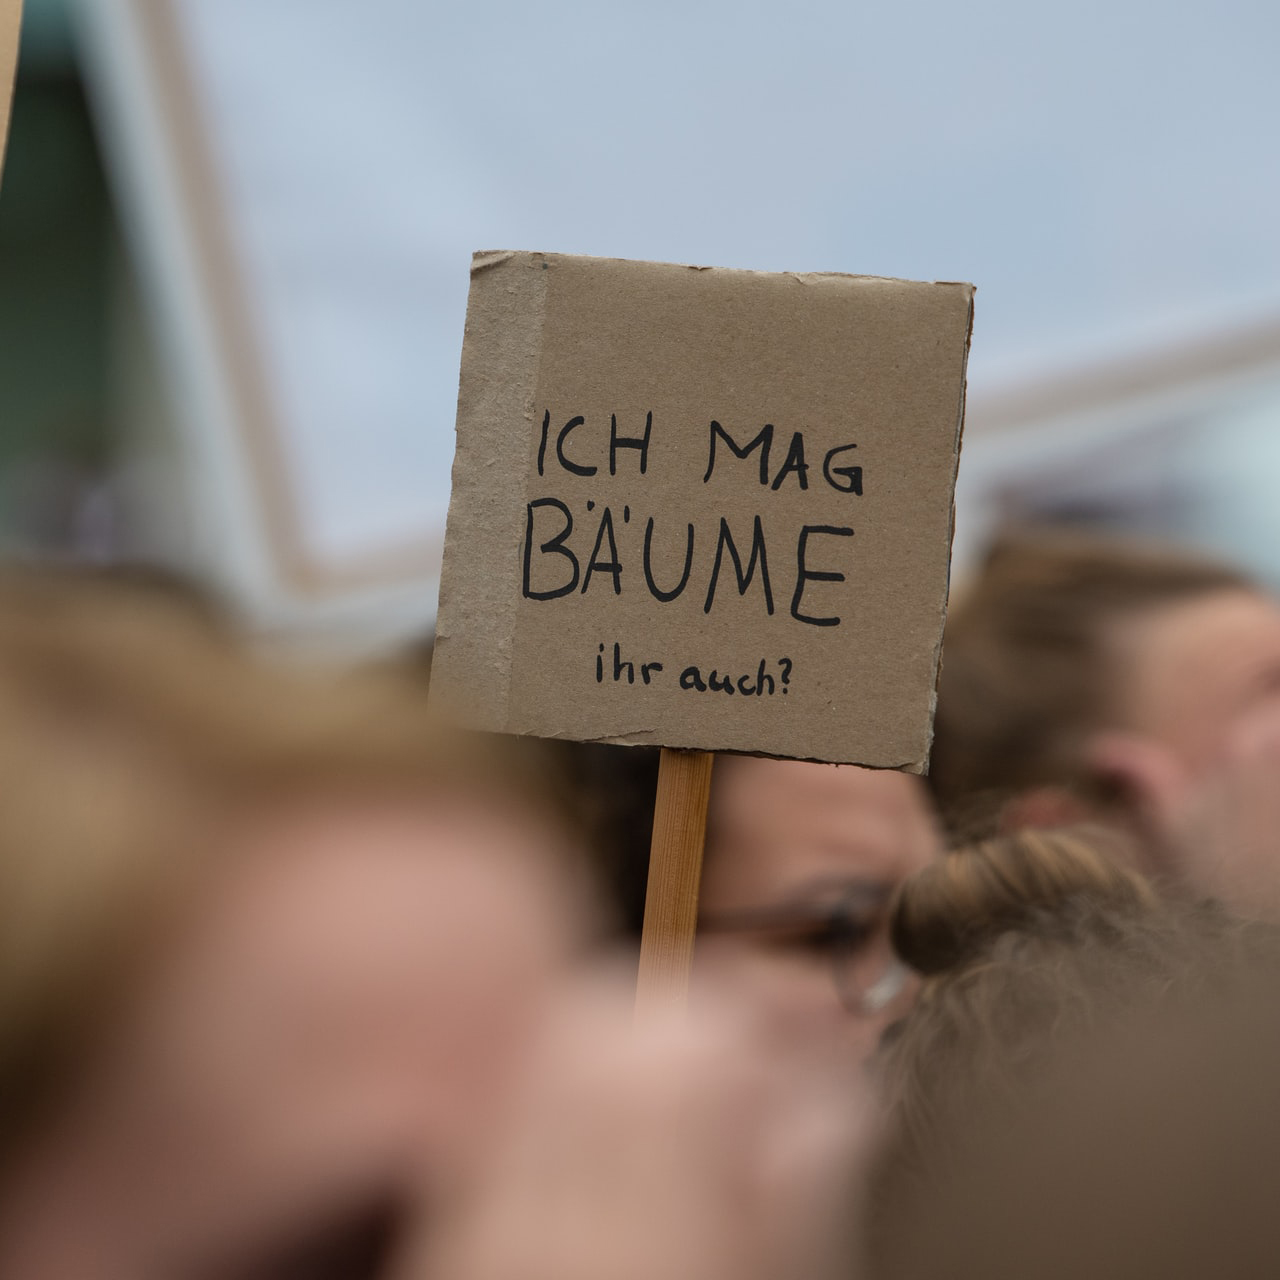 ICH MAG
BÄUME
ihr auch?